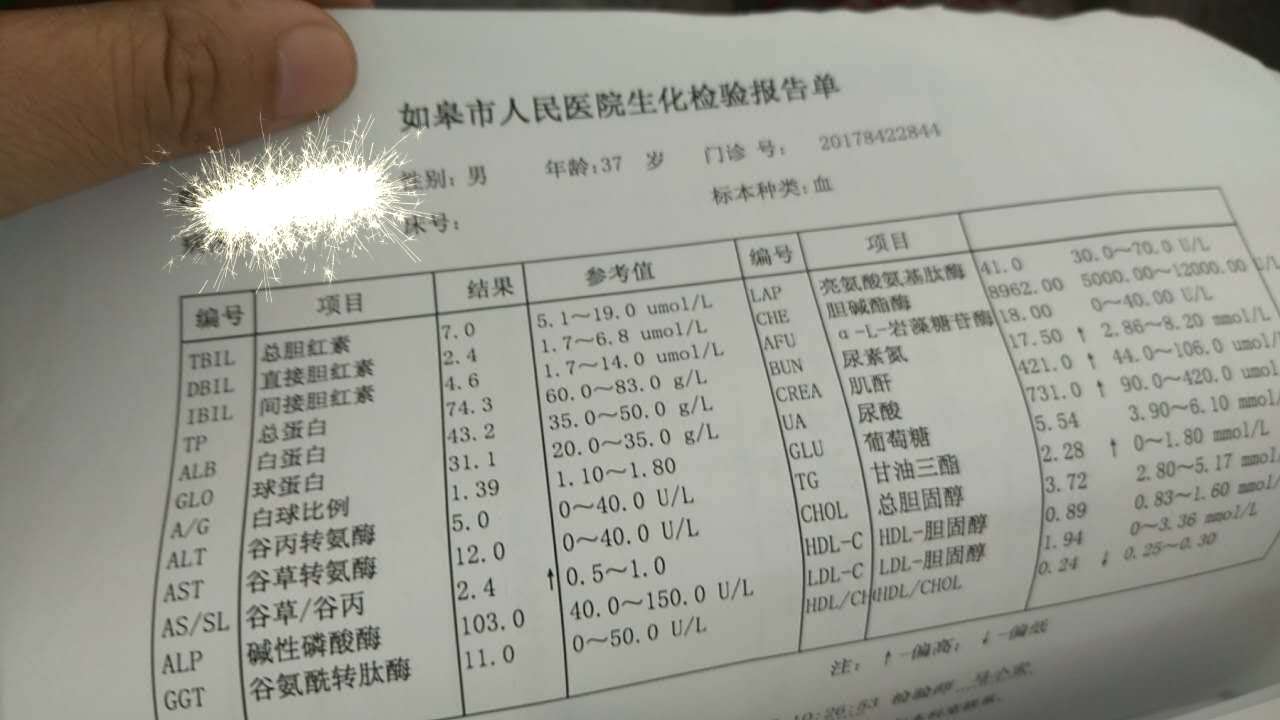 如皋市人民医院生化检验报告单
性别: 男 年龄:37 岁 门诊 号: 20178422844
床号: 标本种类:血
编号 项目 结果 参考值 编号 项目
TBIL 总胆红素 7.0 5.1～19.0 umol/L LAP 亮氨酸氨基肽酶 41.0 30.0～70.0 U/L
DBIL 直接胆红素 2.4 1.7～6.8 umol/L CHE 胆碱酯酶 8962.00 5000.00～12000.00 U/L
IBIL 间接胆红素 4.6 1.7～14.0 umol/L AFU α-L-岩藻糖苷酶 18.00 0～40.00 U/L
TP 总蛋白 74.3 60.0～83.0 g/L BUN 尿素氮 17.50 ↑ 2.86～8.20 mmol/L
ALB 白蛋白 43.2 35.0～50.0 g/L CREA 肌酐 421.0 ↑ 44.0～106.0 umol/
GLO 球蛋白 31.1 20.0～35.0 g/L UA 尿酸 731.0 ↑ 90.0～420.0 umol
A/G 白球比例 1.39 1.10～1.80 GLU 葡萄糖 5.54 3.90～6.10 mmol/
ALT 谷丙转氨酶 5.0 0～40.0 U/L TG 甘油三酯 2.28 ↑ 0～1.80 mmol/L
AST 谷草转氨酶 12.0 0～40.0 U/L CHOL 总胆固醇 3.72 2.80～5.17 mmol/
AS/SL 谷草/谷丙 2.4 ↑ 0.5～1.0 HDL-C HDL-胆固醇 0.89 0.83～1.60 mmol/
ALP 碱性磷酸酶 103.0 40.0～150.0 U/L LDL-C LDL-胆固醇 1.94 0～3.36 mmol/L
GGT 谷氨酰转肽酶 11.0 0～50.0 U/L HDL/CH HDL/CHOL 0.24 ↓ 0.25～0.30
注: ↑-偏高; ↓-偏低
10:26:53 检验师